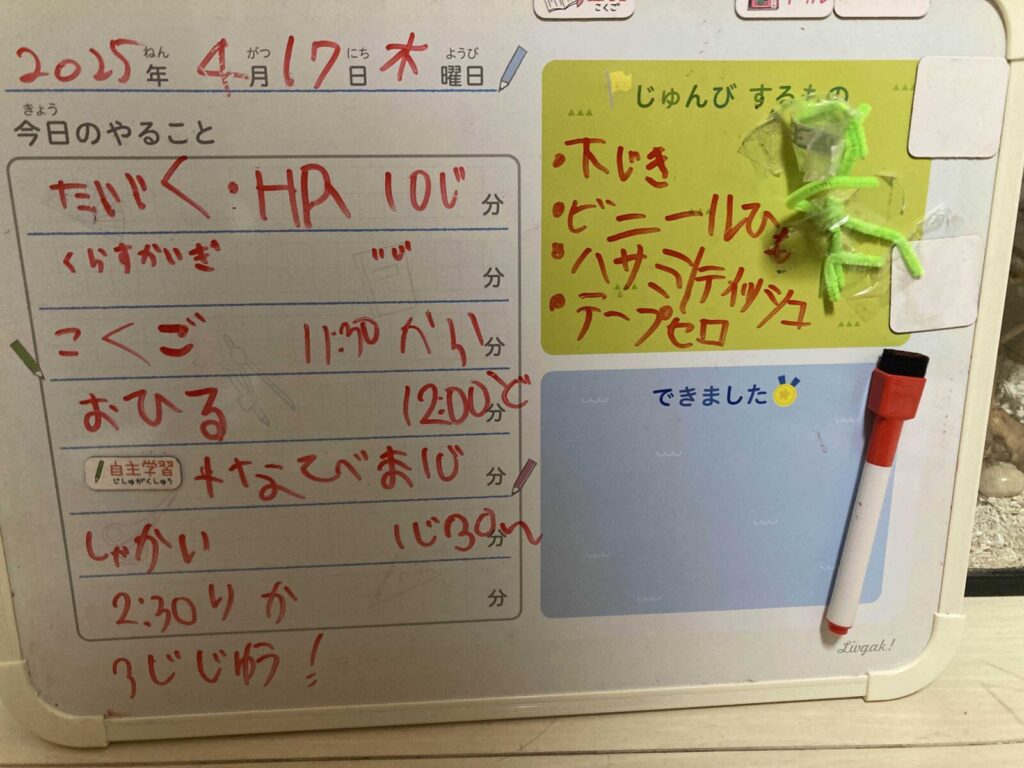 こくご
2025年 4月17日 木曜日
ねん がつ にち ようび
きょう
今日のやること
たいいく・HR 10じ 分
くらすかいぎ 〃じ 分
こくご 11:30 から 分
おひる 12:00ど 分
自主学習 +なてべま1じ 分
じしゅがくしゅう
しゃかい 1じ30〜 分
2:30りか 分
3じじゆう!
じゅんび するもの
・下じき
・ビニールひも
・ハサミ/ティッシュ
・テープセロ
できました
Livgak!